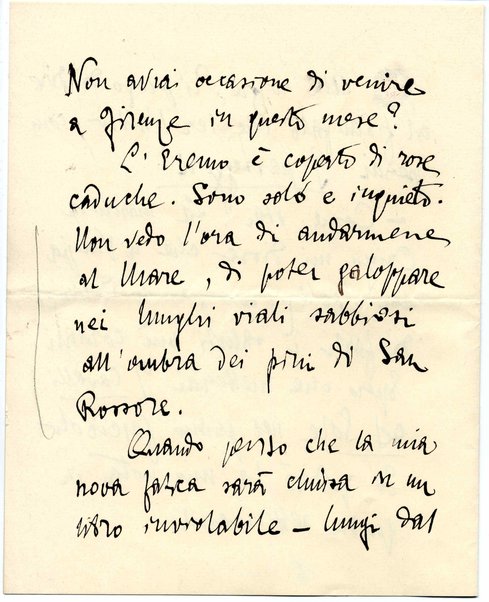 Non avrai occasione di venire
a Firenze in questo mese?
L'Eremo è coperto di rose
caduche. Sono solo e inquieto.
Non vedo l'ora di andarmene
al Mare, di poter galoppare
nei lunghi viali sabbiosi
all'ombra dei pini di San
Rossore.
Quando penso che la mia
nova fatica sarà chiusa in un
libro inviolabile – lungi dal